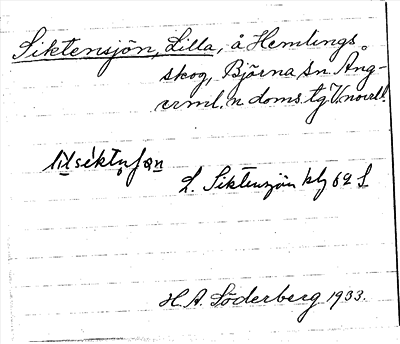 Siktensjön, Lilla, å Hemlings
skog, Björna sn. Ång-
erml. n doms. tg V.norrl.
L. Siktensjön klj 62 S
H. A. Söderberg 1933.